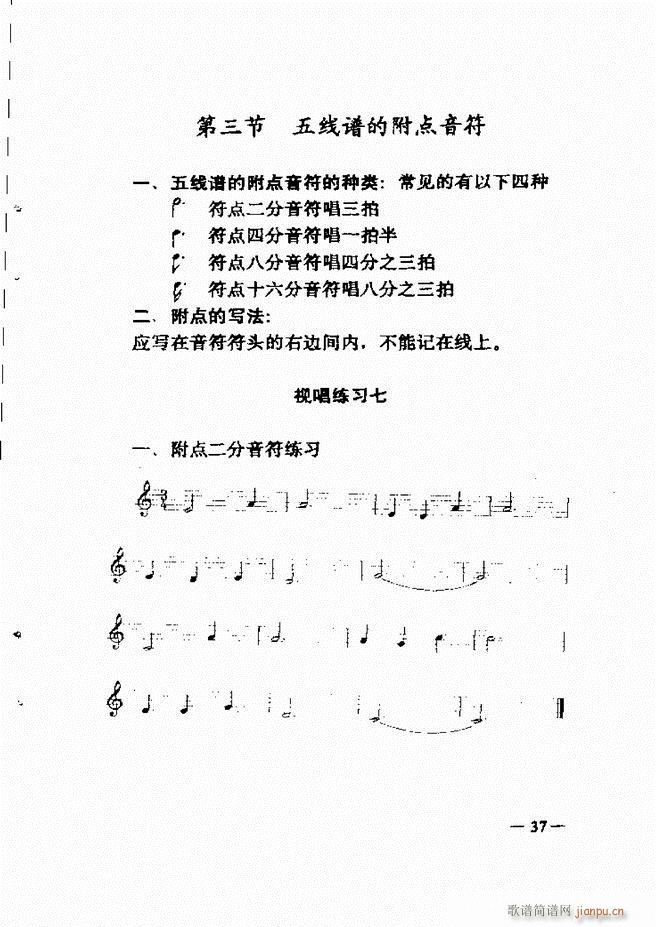 第三节 五线谱的附点音符
一、五线谱的附点音符的种类：常见的有以下四种
符点二分音符唱三拍
符点四分音符唱一拍半
符点八分音符唱四分之三拍
符点十六分音符唱八分之三拍
二、附点的写法：
应写在音符符头的右边间内，不能记在线上。
视唱练习七
一、附点二分音符练习
—37—
歌谱简谱网 jianpu.cn